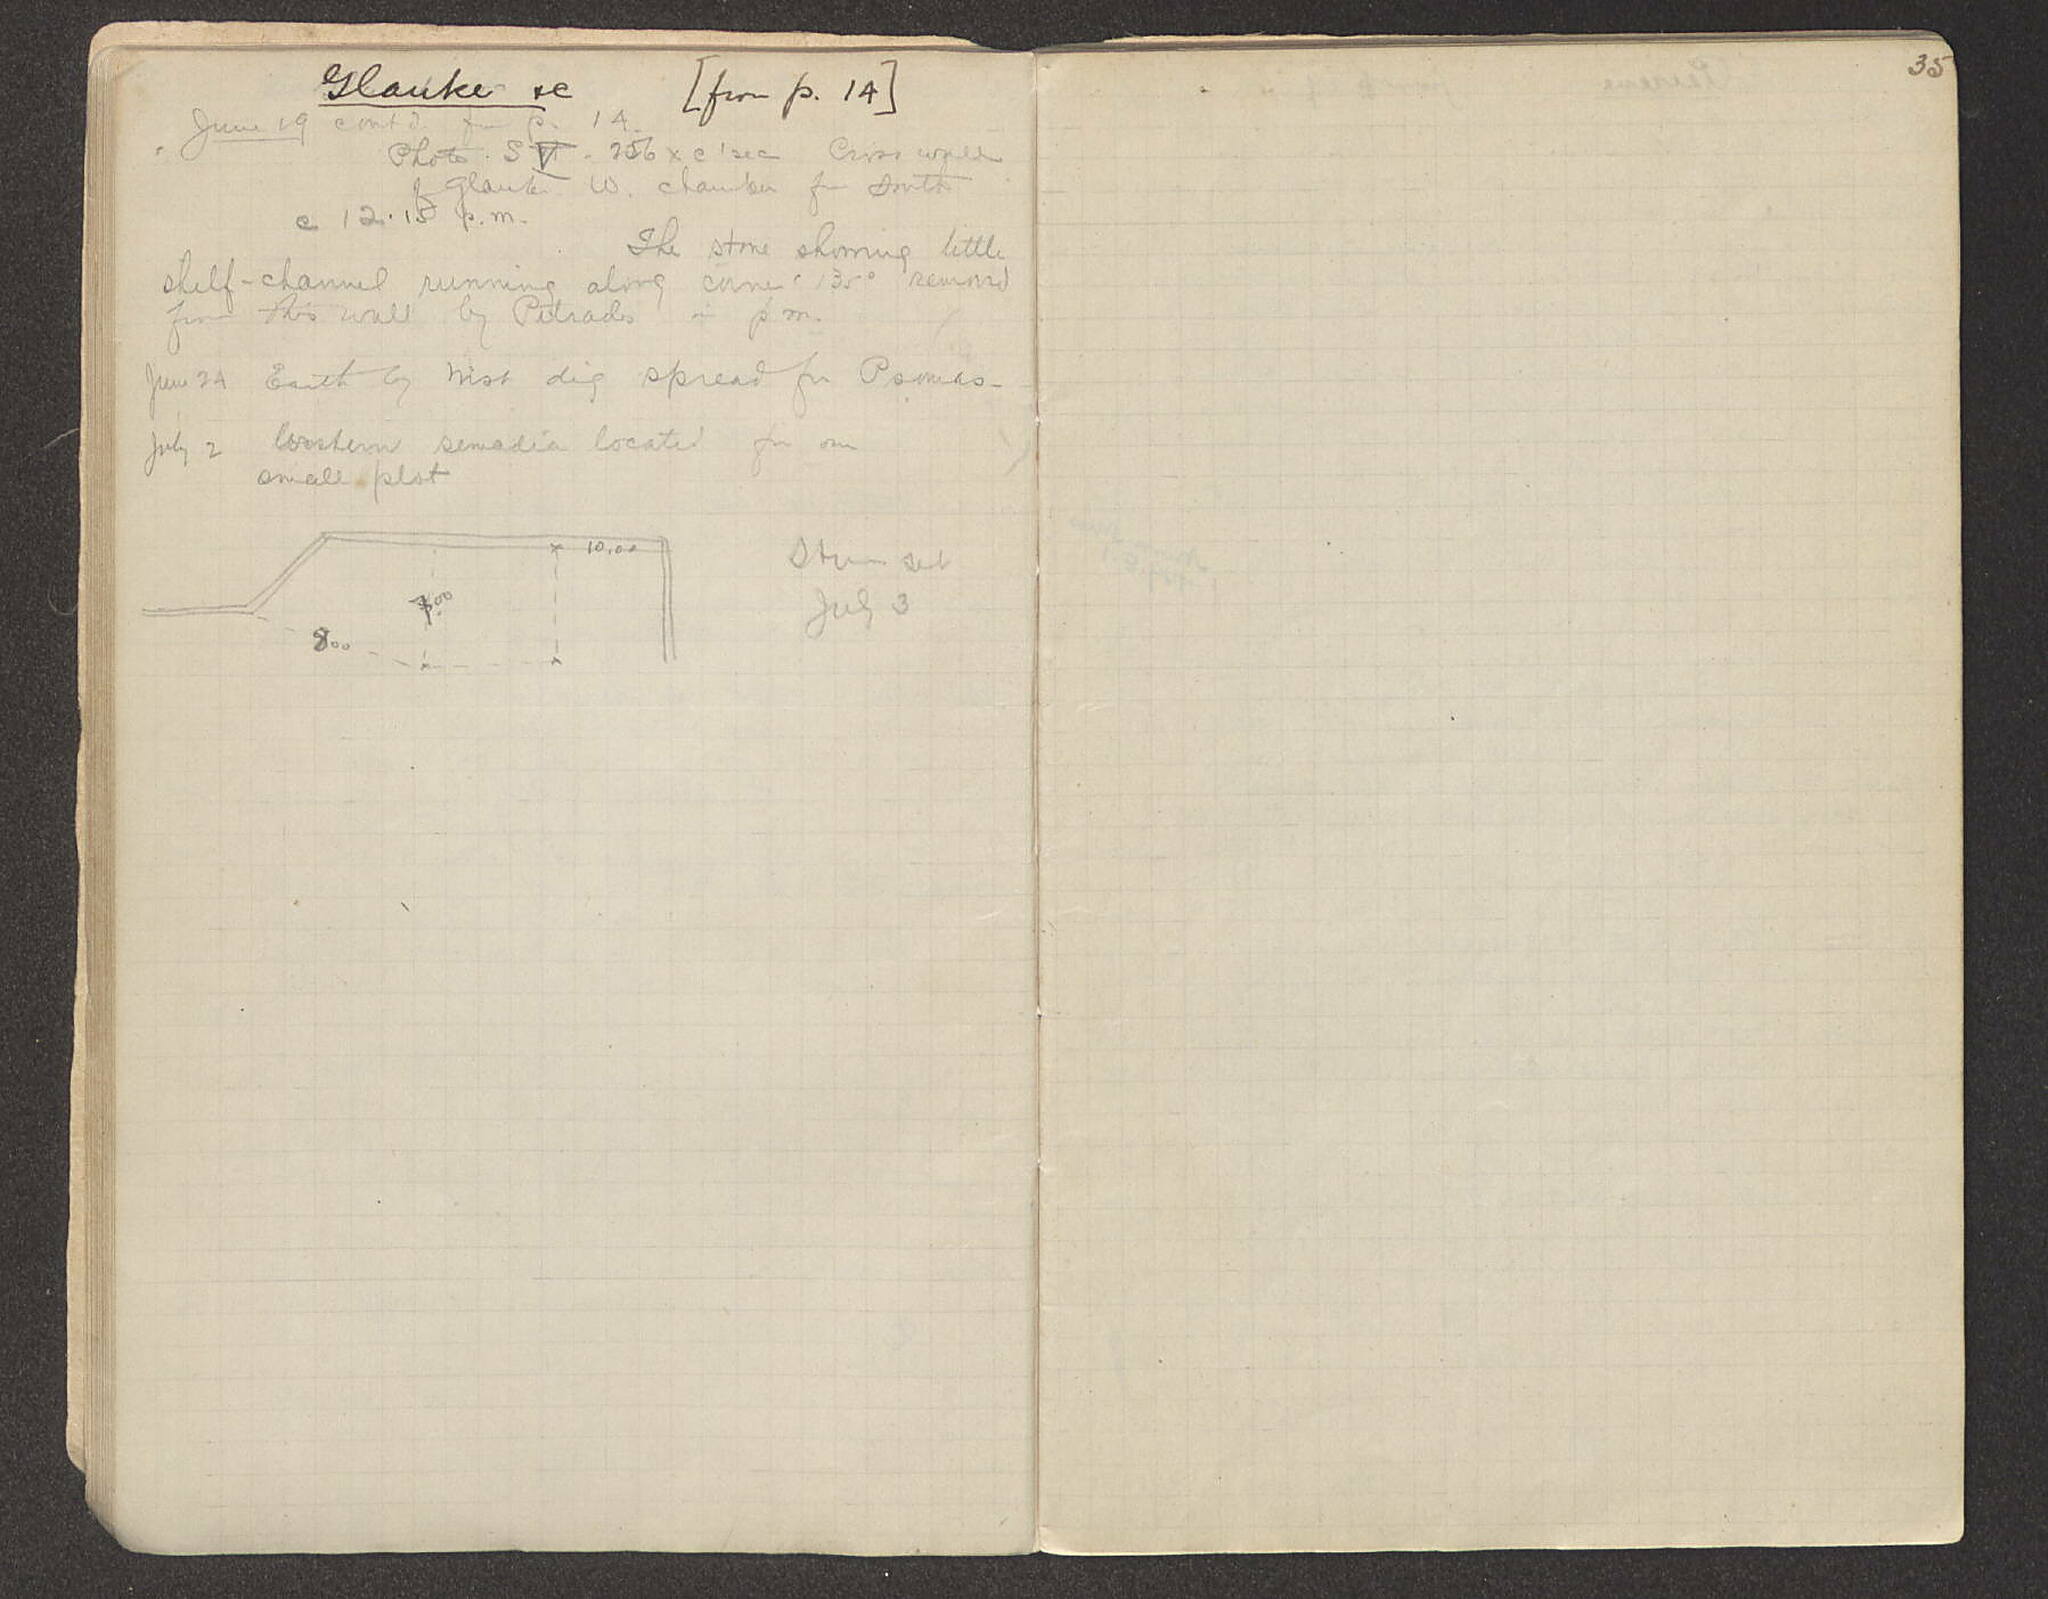 Glauke sc [from p. 14]
June 19 cont'd fm p. 14.
Photo. S V - 256 x c 1 sec Cross wall
of Glauke W. chamber fm South
c 12.15 p.m.
The stone showing little
shelf-channel running along corner 135° removed
from this wall by Petrades in p m.
June 24 Earth by West dig spread for Psomas-
July 2 Western semadia located for our
small plot
10.00
Stones set
July 3
8.00
35